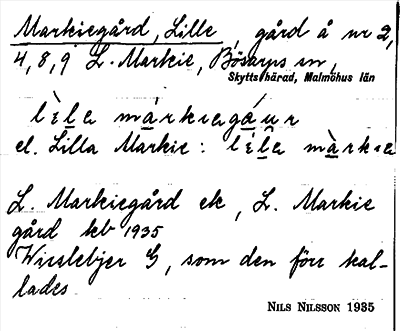 Markiegård, Lille, gård å nr 2,
4, 8, 9 L. Markie, Bösarps sn,
Skytts härad, Malmöhus län
el. Lilla Markie:
L. Markiegård ek, L. Markie
gård kb 1935
G, som den förr kal-
lades
NILS NILSSON 1935